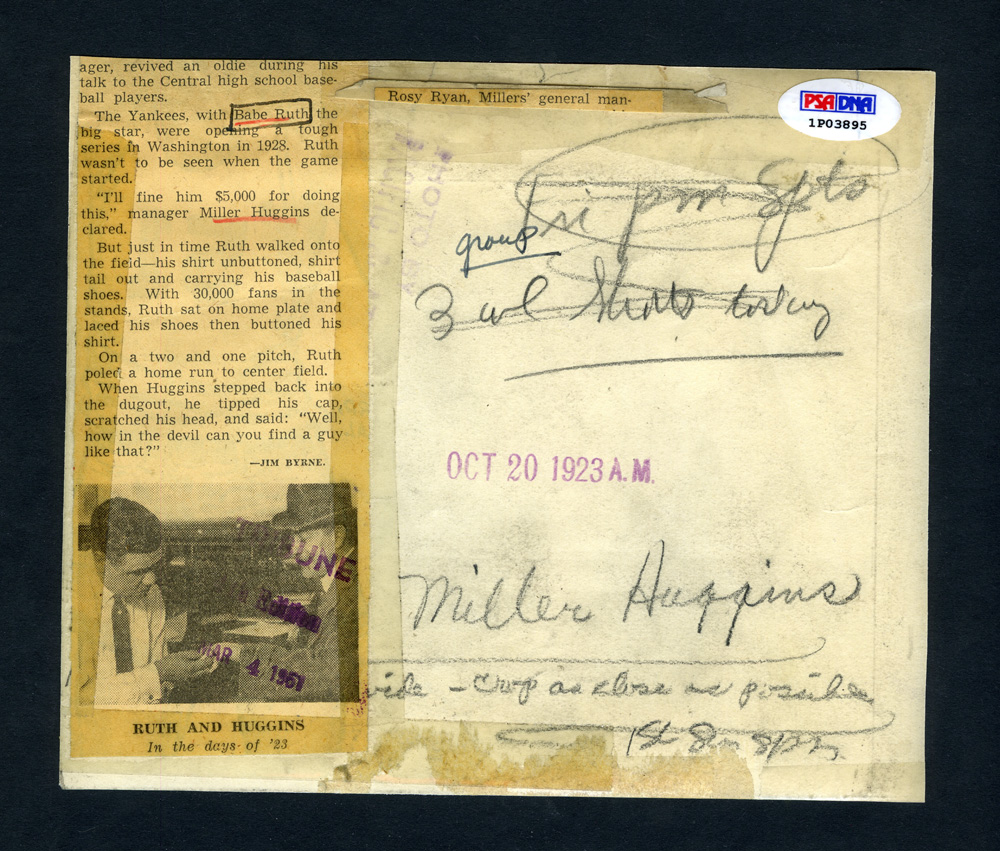 Rosy Ryan, Millers' general man-
ager, revived an oldie during his
talk to the Central high school base-
ball players.
The Yankees, with Babe Ruth the
big star, were opening a tough
series in Washington in 1928. Ruth
wasn't to be seen when the game
started.
"I'll fine him $5,000 for doing
this," manager Miller Huggins de-
clared.
But just in time Ruth walked onto
the field—his shirt unbuttoned, shirt
tail out and carrying his baseball
shoes. With 30,000 fans in the
stands, Ruth sat on home plate and
laced his shoes then buttoned his
shirt.
On a two and one pitch, Ruth
poled a home run to center field.
When Huggins stepped back into
the dugout, he tipped his cap,
scratched his head, and said: "Well,
how in the devil can you find a guy
like that?"
—JIM BYRNE.
TRIBUNE
MAR 4, 1961
RUTH AND HUGGINS
In the days of '23
PSA DNA
1P03895
In pm Spts
group
3 col
today
OCT 20 1923 A.M.
Miller Huggins
wide - crop as close as possible